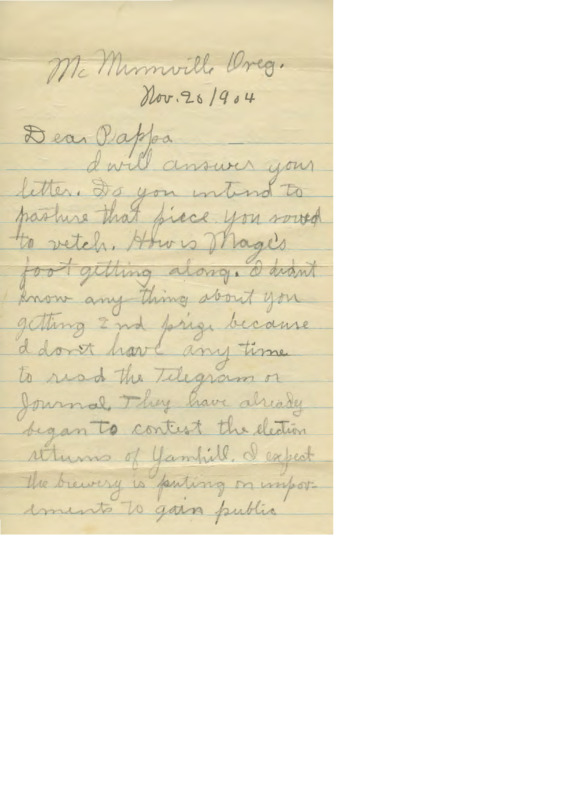 Mc Minnville Oreg.
Nov. 20/904
Dear Pappa
I will answer your
letter. Do you intend to
pasture that piece you sowed
to vetch. How is Mage's
foot getting along. I didnt
know any thing about you
getting 2nd prize because
I don't have any time
to read the Telegram or
Journal. They have already
began to contest the election
returns of Yamhill. I expect
the brewery is puting on impov-
ements to gain public